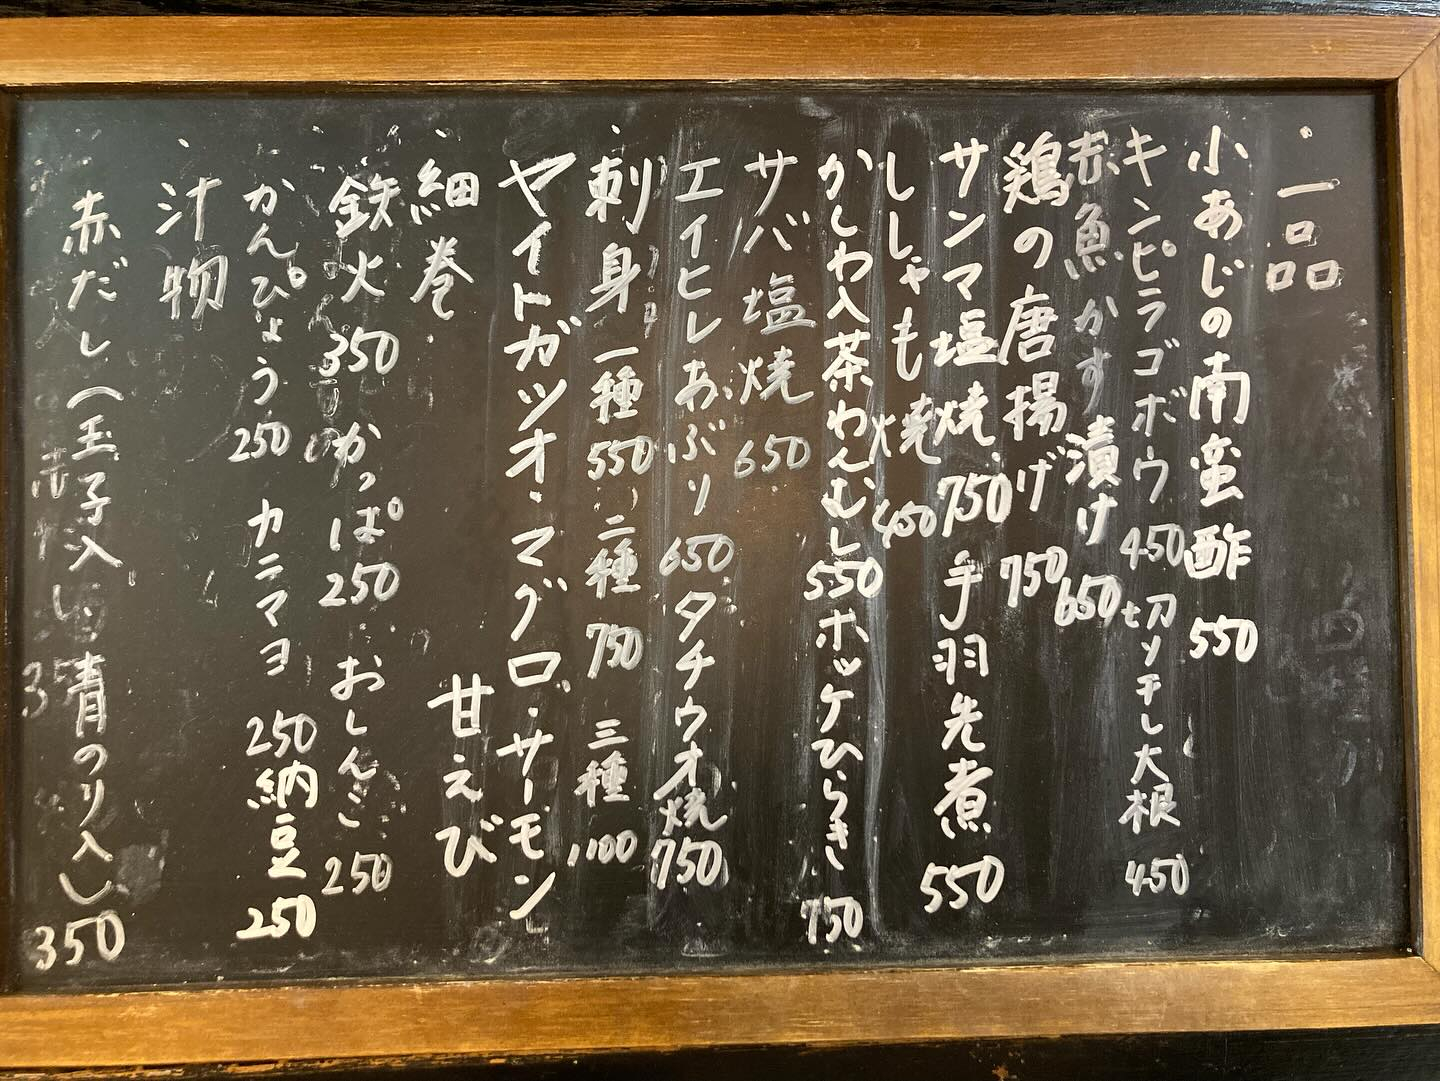 一品
小あじの南蛮酢 550
キンピラゴボウ 450 切り干し大根 450
赤魚かす漬け 650
鶏の唐揚げ 750
サンマ塩焼 750 手羽先煮 550
ししゃも焼 450
かしわ入茶わんむし 550 ホッケひらき 750
サバ塩焼 650
エイヒレあぶり 650 タチウオ焼 750
刺身 一種 550 二種 750 三種 1100
ヤイトガツオ・マグロ・サーモン
甘えび
細巻
鉄火 350 かっぱ 250 おしんこ 250
かんぴょう 250 カニマヨ 250 納豆 250
汁物
赤だし(玉子入り・青のり入り) 350